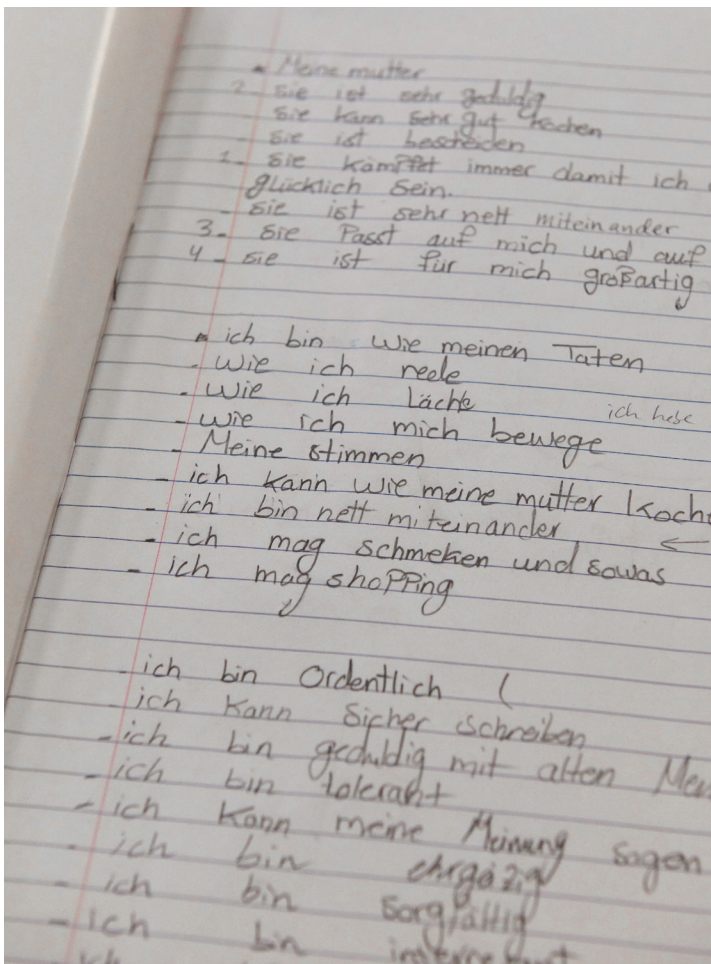 - Meine mutter
2- sie ist sehr geduldig
sie kann sehr gut kochen
- sie ist bescheiden
1- sie kämpfet immer damit ich
glücklich sein.
- sie ist sehr nett miteinander
3- sie Passt auf mich und auf
4- sie ist für mich großartig
- ich bin wie meinen Taten
- wie ich reele
- wie ich Lächle
ich hebe
- wie ich mich bewege
- Meine stimmen
- ich kann wie meine mutter koch
- ich bin nett miteinander
- ich mag schmeken und sowas
- ich mag shopping
- ich bin Ordentlich (
ich kann sicher schreiben
- ich bin geduldig mit alten Men
- ich bin tolerant
- ich kann meine Meinung sagen
- ich bin ehrgäzig
- ich bin sorgfältig
- ich bin
ich